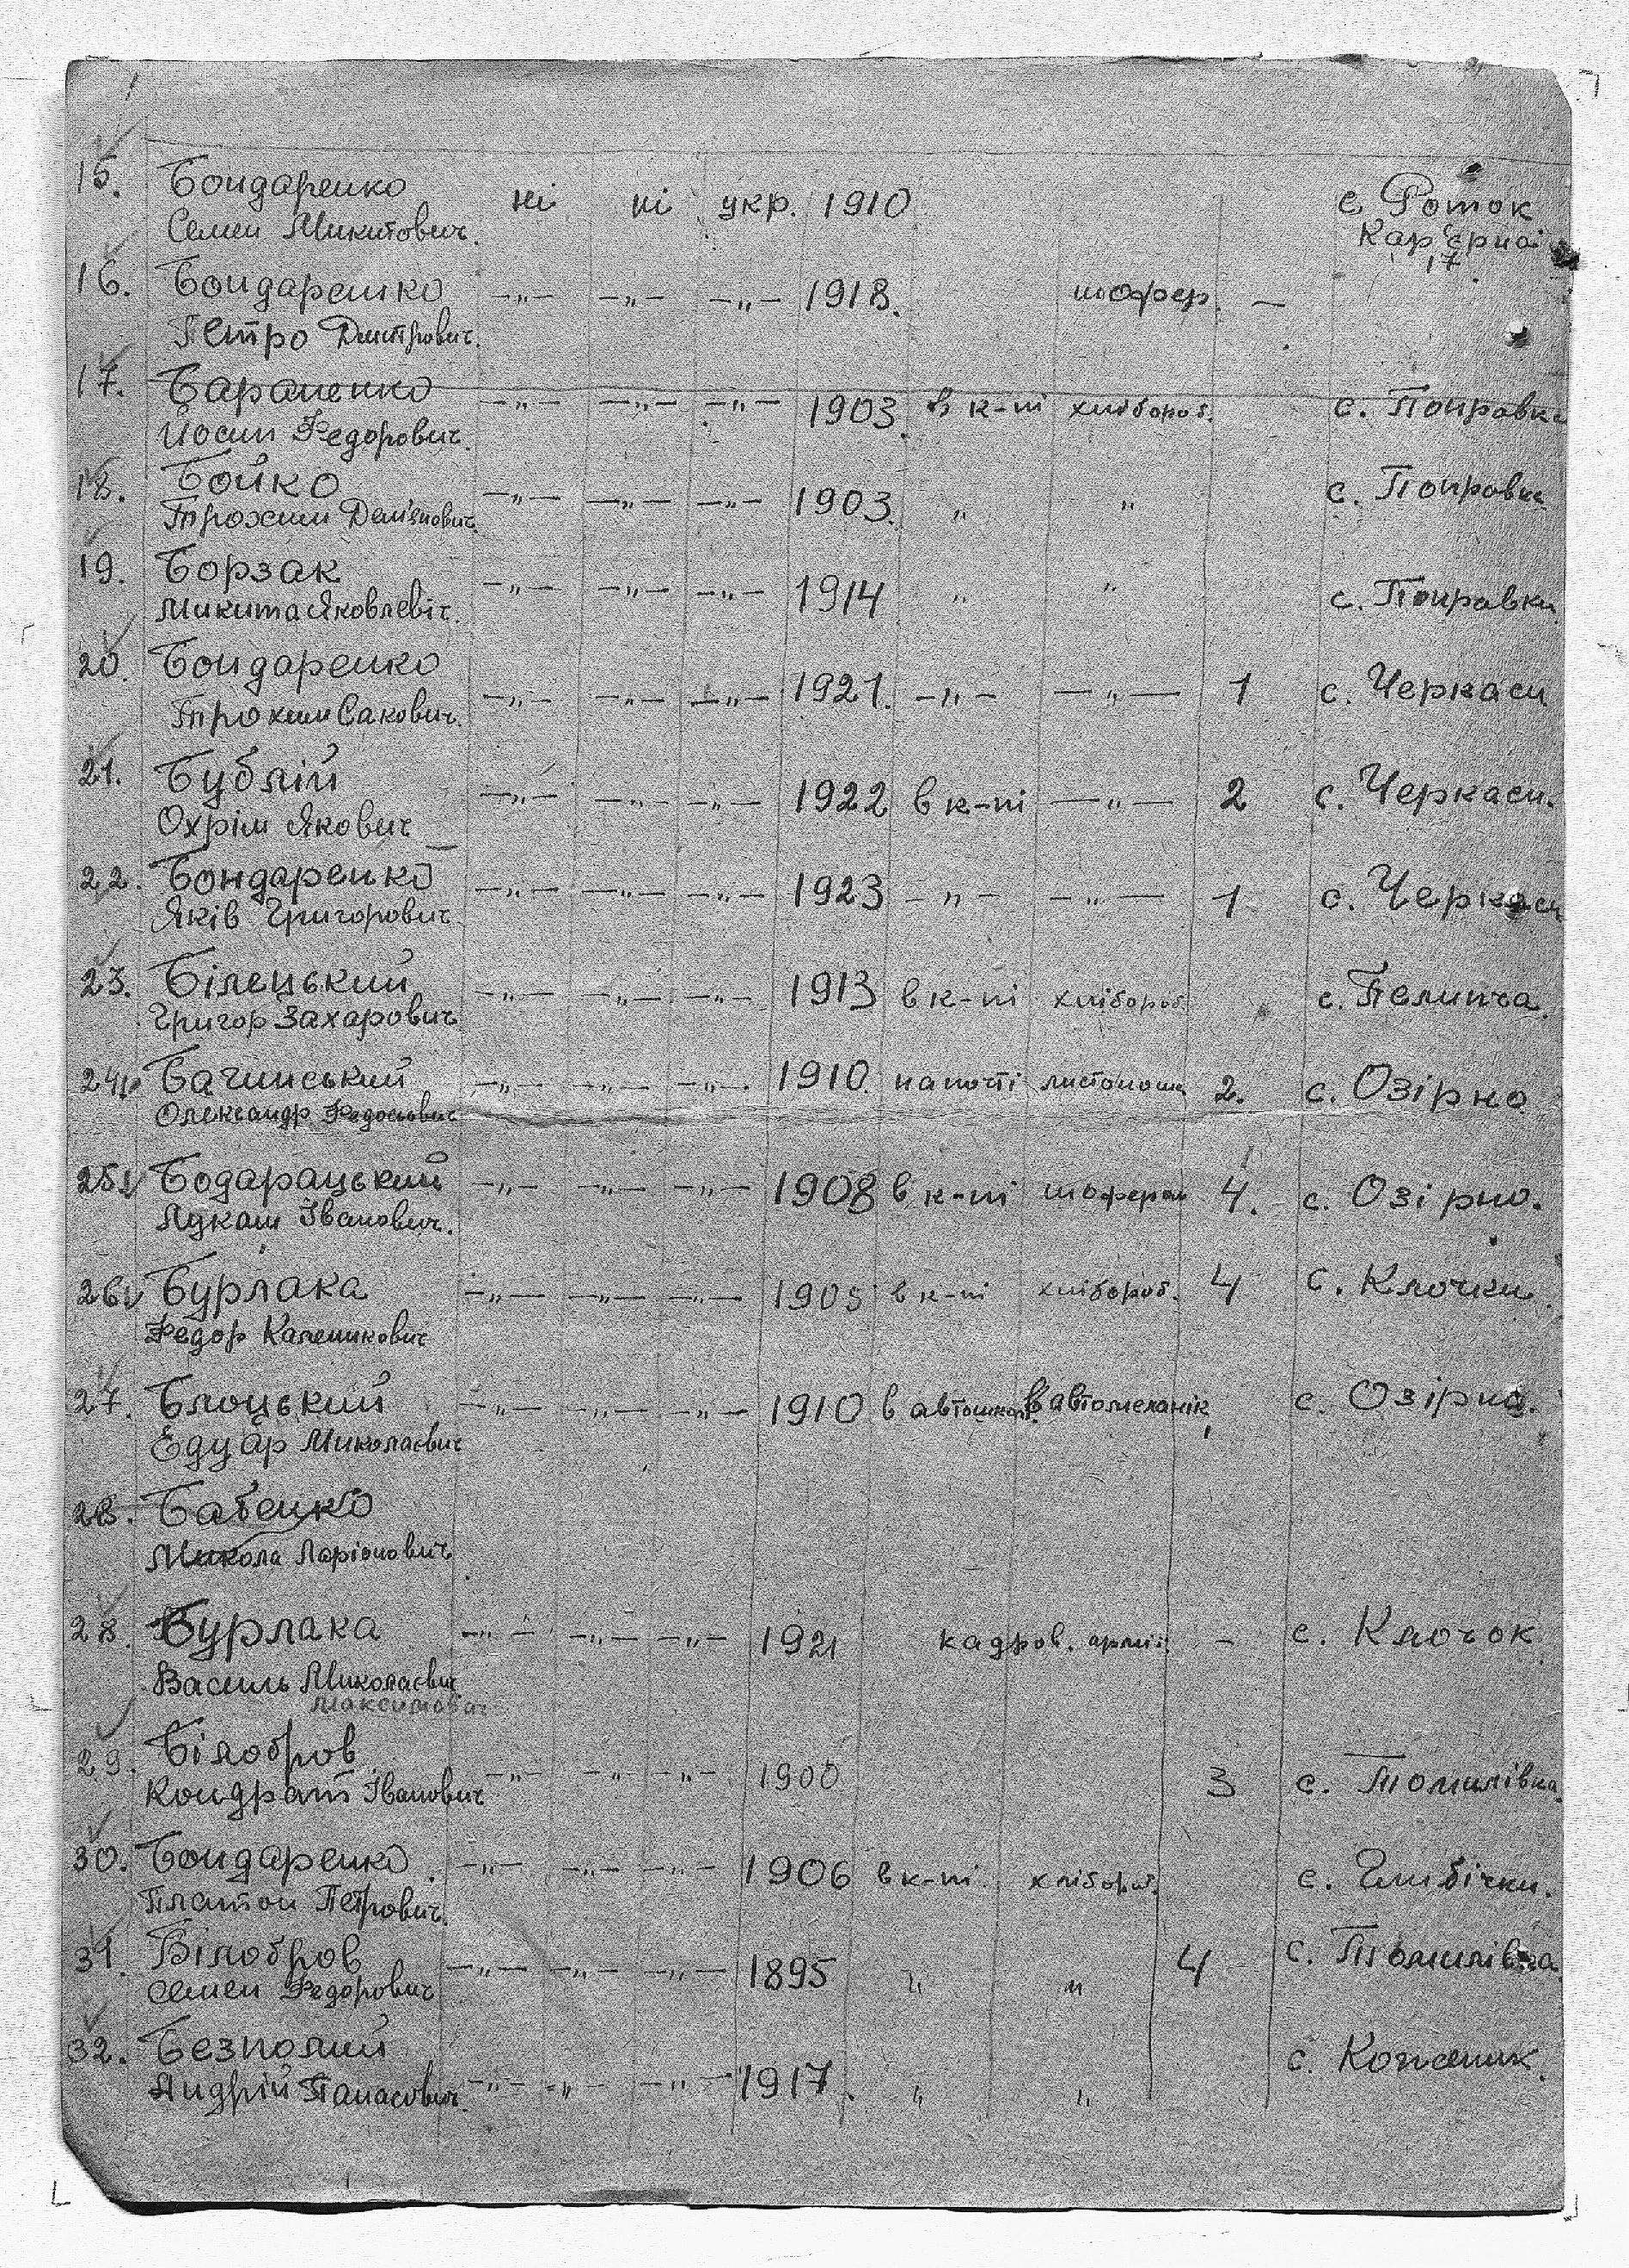 15. Бондаренко ні ні укр. 1910 с. Роток
Семен Микитович. Кар'єрна
17
16. Бондаренко —„— —„— —„— 1918. шофер. —
Петро Дмитрович.
17. Бараненко —„— —„— —„— 1903. в к-пі хлібороб. с. Поправка
Йосип Федорович.
18. Бойко —„— —„— —„— 1903. „ „ с. Поправка
Трохим Дем'янович.
19. Борзак —„— —„— —„— 1914 „ „ с. Поправка
Микита Яковлевіч.
20. Бондаренко —„— —„— —„— 1921. —„— —„— 1 с. Черкаси
Трохим Сакович.
21. Бублій —„— —„— —„— 1922 в к-пі —„— 2 с. Черкаси.
Охрім Якович
22. Бондаренко —„— —„— —„— 1923 —„— —„— 1 с. Черкаси
Яків Григорович
23. Білецький —„— —„— —„— 1913 в к-пі хлібороб. с. Пеличча.
Григор Захарович
24. Бачинський —„— —„— —„— 1910 на пошті листоноша 2. с. Озірно
Олександр Федосович
25. Бодарацький —„— —„— —„— 1908 в к-пі шофером 4. с. Озірно.
Лукаш Іванович.
26. Бурлака —„— —„— —„— 1905 в к-пі хлібороб. 4 с. Клочки.
Федор Каленикович
27. Блоцький —„— —„— —„— 1910 в автошколі автомеханік с. Озірна.
Едуар Миколаєвич
28. Бабенко
Микола Ларіонович
28. Бурлака —„— —„— —„— 1921 кадров. армії. — с. Клочок
Василь Миколаєвич
Максимович
29. Білобров —„— —„— —„— 1900 3 с. Томилівка.
Кондрат Іванович
30. Бондаренко —„— —„— —„— 1906 в к-пі хлібороб. с. Глибічки.
Платон Петрович.
31. Білобров —„— —„— —„— 1895 „ „ 4 с. Томилівка
Семен Федорович
32. Безполий —„— —„— —„— 1917. „ „ с. Кожаник.
Андрій Панасович.